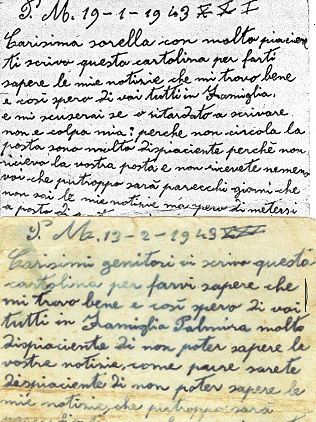 P. M. 19-1-1943 XXI
Carisima sorella con molto piacere
ti scrivo questa cartolina per farti
sapere le mie notizie che mi trovo bene
e così spero di voi tutti in Famiglia.
e mi scuserai se o ritardato a scrivare
non e colpa mia? perche non circola la
posta sono molto dispiaciente perchè non
ricievo la vostra posta e non ricevete nemeno
voi che putroppo sarà parecchi giorni che
non sai le mie notizie ma spero di metersi
a posto di
P. M. 13-2-1943 XXI
Carisimi genitori vi scrivo questa
cartolina per farvi sapere che
mi trovo bene e così spero di voi
tutti in Famiglia Palmira molto
dispiaciente di non poter sapere le
vostre notizie, come pure sarete
despiaciente di non poter sapere le
mie notizie, che putroppo sara